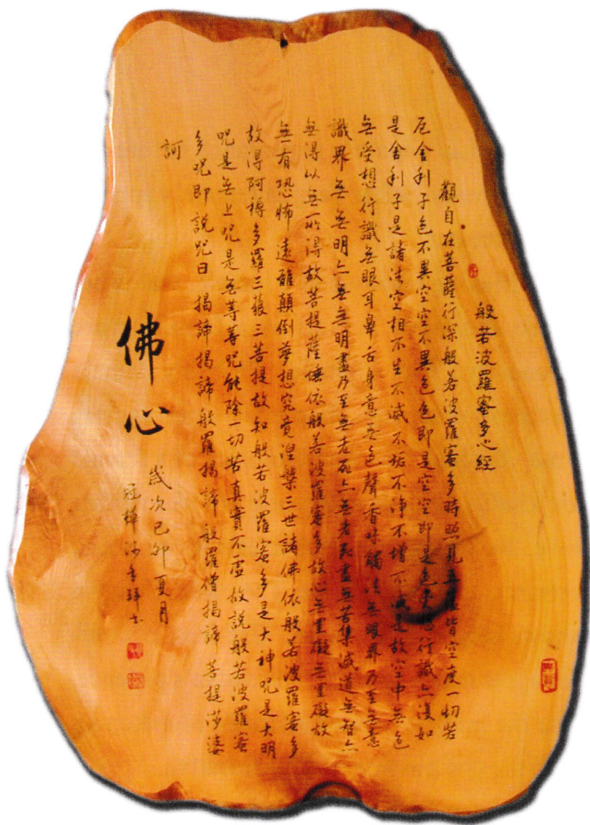 般若波羅蜜多心經
觀自在菩薩行深般若波羅蜜多時照見五蘊皆空度一切苦
厄舍利子色不異空空不異色色即是空空即是色受想行識亦復如
是舍利子是諸法空相不生不滅不垢不淨不增不減是故空中無色
無受想行識無眼耳鼻舌身意無色聲香味觸法無眼界乃至無意
識界無無明亦無無明盡乃至無老死亦無老死盡無苦集滅道無智亦
無得以無所得故菩提薩埵依般若波羅蜜多故心無罣礙無罣礙故
無有恐怖遠離顛倒夢想究竟涅槃三世諸佛依般若波羅蜜多
故得阿耨多羅三藐三菩提故知般若波羅蜜多是大神咒是大明
咒是無上咒是無等等咒能除一切苦真實不虛故說般若波羅蜜
多咒即說咒曰 揭諦揭諦 般羅揭諦 般羅僧揭諦 菩提莎婆
訶
佛心
歲次己卯夏月